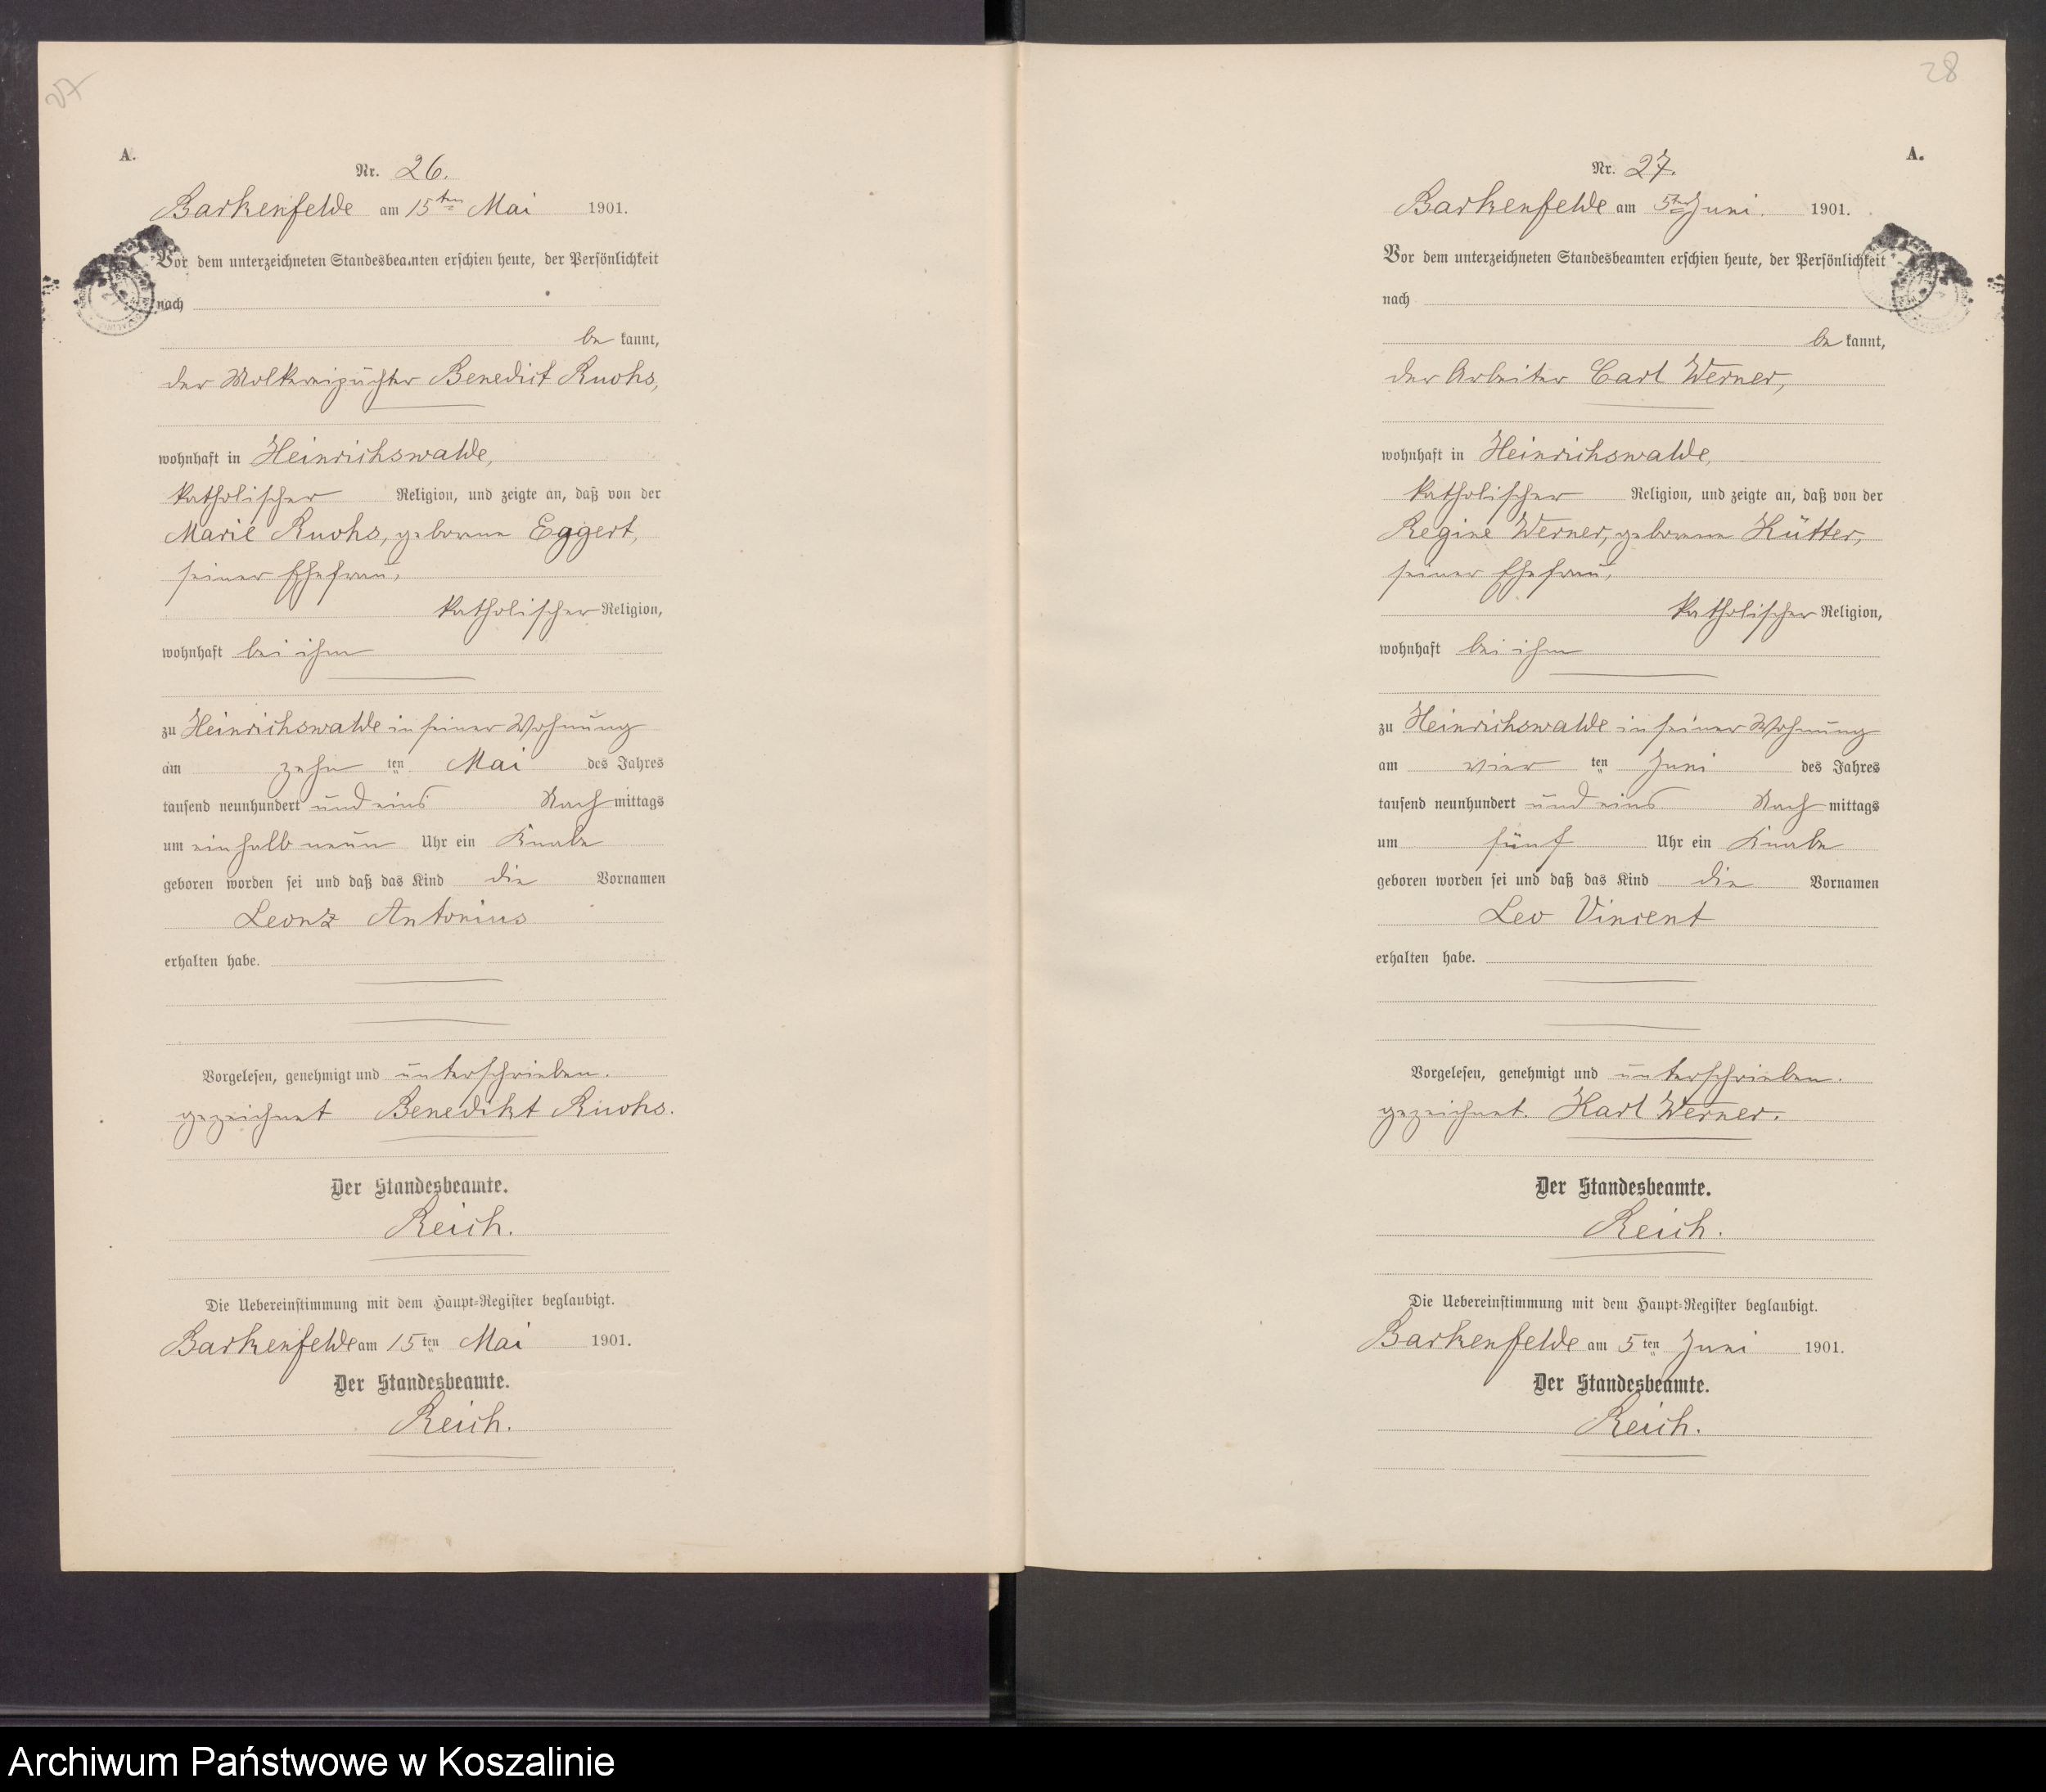 27
A.
Nr. 26.
Barkenfelde am 15ten Mai 1901.
Vor dem unterzeichneten Standesbeamten erschien heute, der Persönlichkeit
nach
be kannt,
der Molkereipächter Benedict Ruohs,
wohnhaft in Heinrichswalde,
katholischer Religion, und zeigte an, daß von der
Marie Ruohs, geborene Eggert,
seiner Ehefrau,
katholischer Religion,
wohnhaft bei ihm
zu Heinrichswalde in seiner Wohnung
am zehn ten Mai des Jahres
tausend neunhundert und eins Nach mittags
um ein halb neun Uhr ein Knabe
geboren worden sei und daß das Kind die Vornamen
Leonz Antonius
erhalten habe.
Vorgelesen, genehmigt und unterschrieben.
gezeichnet Benedikt Ruohs.
Der Standesbeamte.
Reich.
Die Uebereinstimmung mit dem Haupt-Register beglaubigt.
Barkenfelde am 15ten Mai 1901.
Der Standesbeamte.
Reich.
28
A.
Nr. 27.
Barkenfelde am 5ten Juni. 1901.
Vor dem unterzeichneten Standesbeamten erschien heute, der Persönlichkeit
nach
be kannt,
der Arbeiter Carl Werner,
wohnhaft in Heinrichswalde,
katholischer Religion, und zeigte an, daß von der
Regine Werner, geborene Hütter,
seiner Ehefrau,
katholischer Religion,
wohnhaft bei ihm
zu Heinrichswalde in seiner Wohnung
am vier ten Juni des Jahres
tausend neunhundert und eins Nach mittags
um fünf Uhr ein Knabe
geboren worden sei und daß das Kind die Vornamen
Leo Vincent
erhalten habe.
Vorgelesen, genehmigt und unterschrieben.
gezeichnet. Karl Werner.
Der Standesbeamte.
Reich.
Die Uebereinstimmung mit dem Haupt-Register beglaubigt.
Barkenfelde am 5ten Juni 1901.
Der Standesbeamte.
Reich.
Archiwum Państwowe w Koszalinie